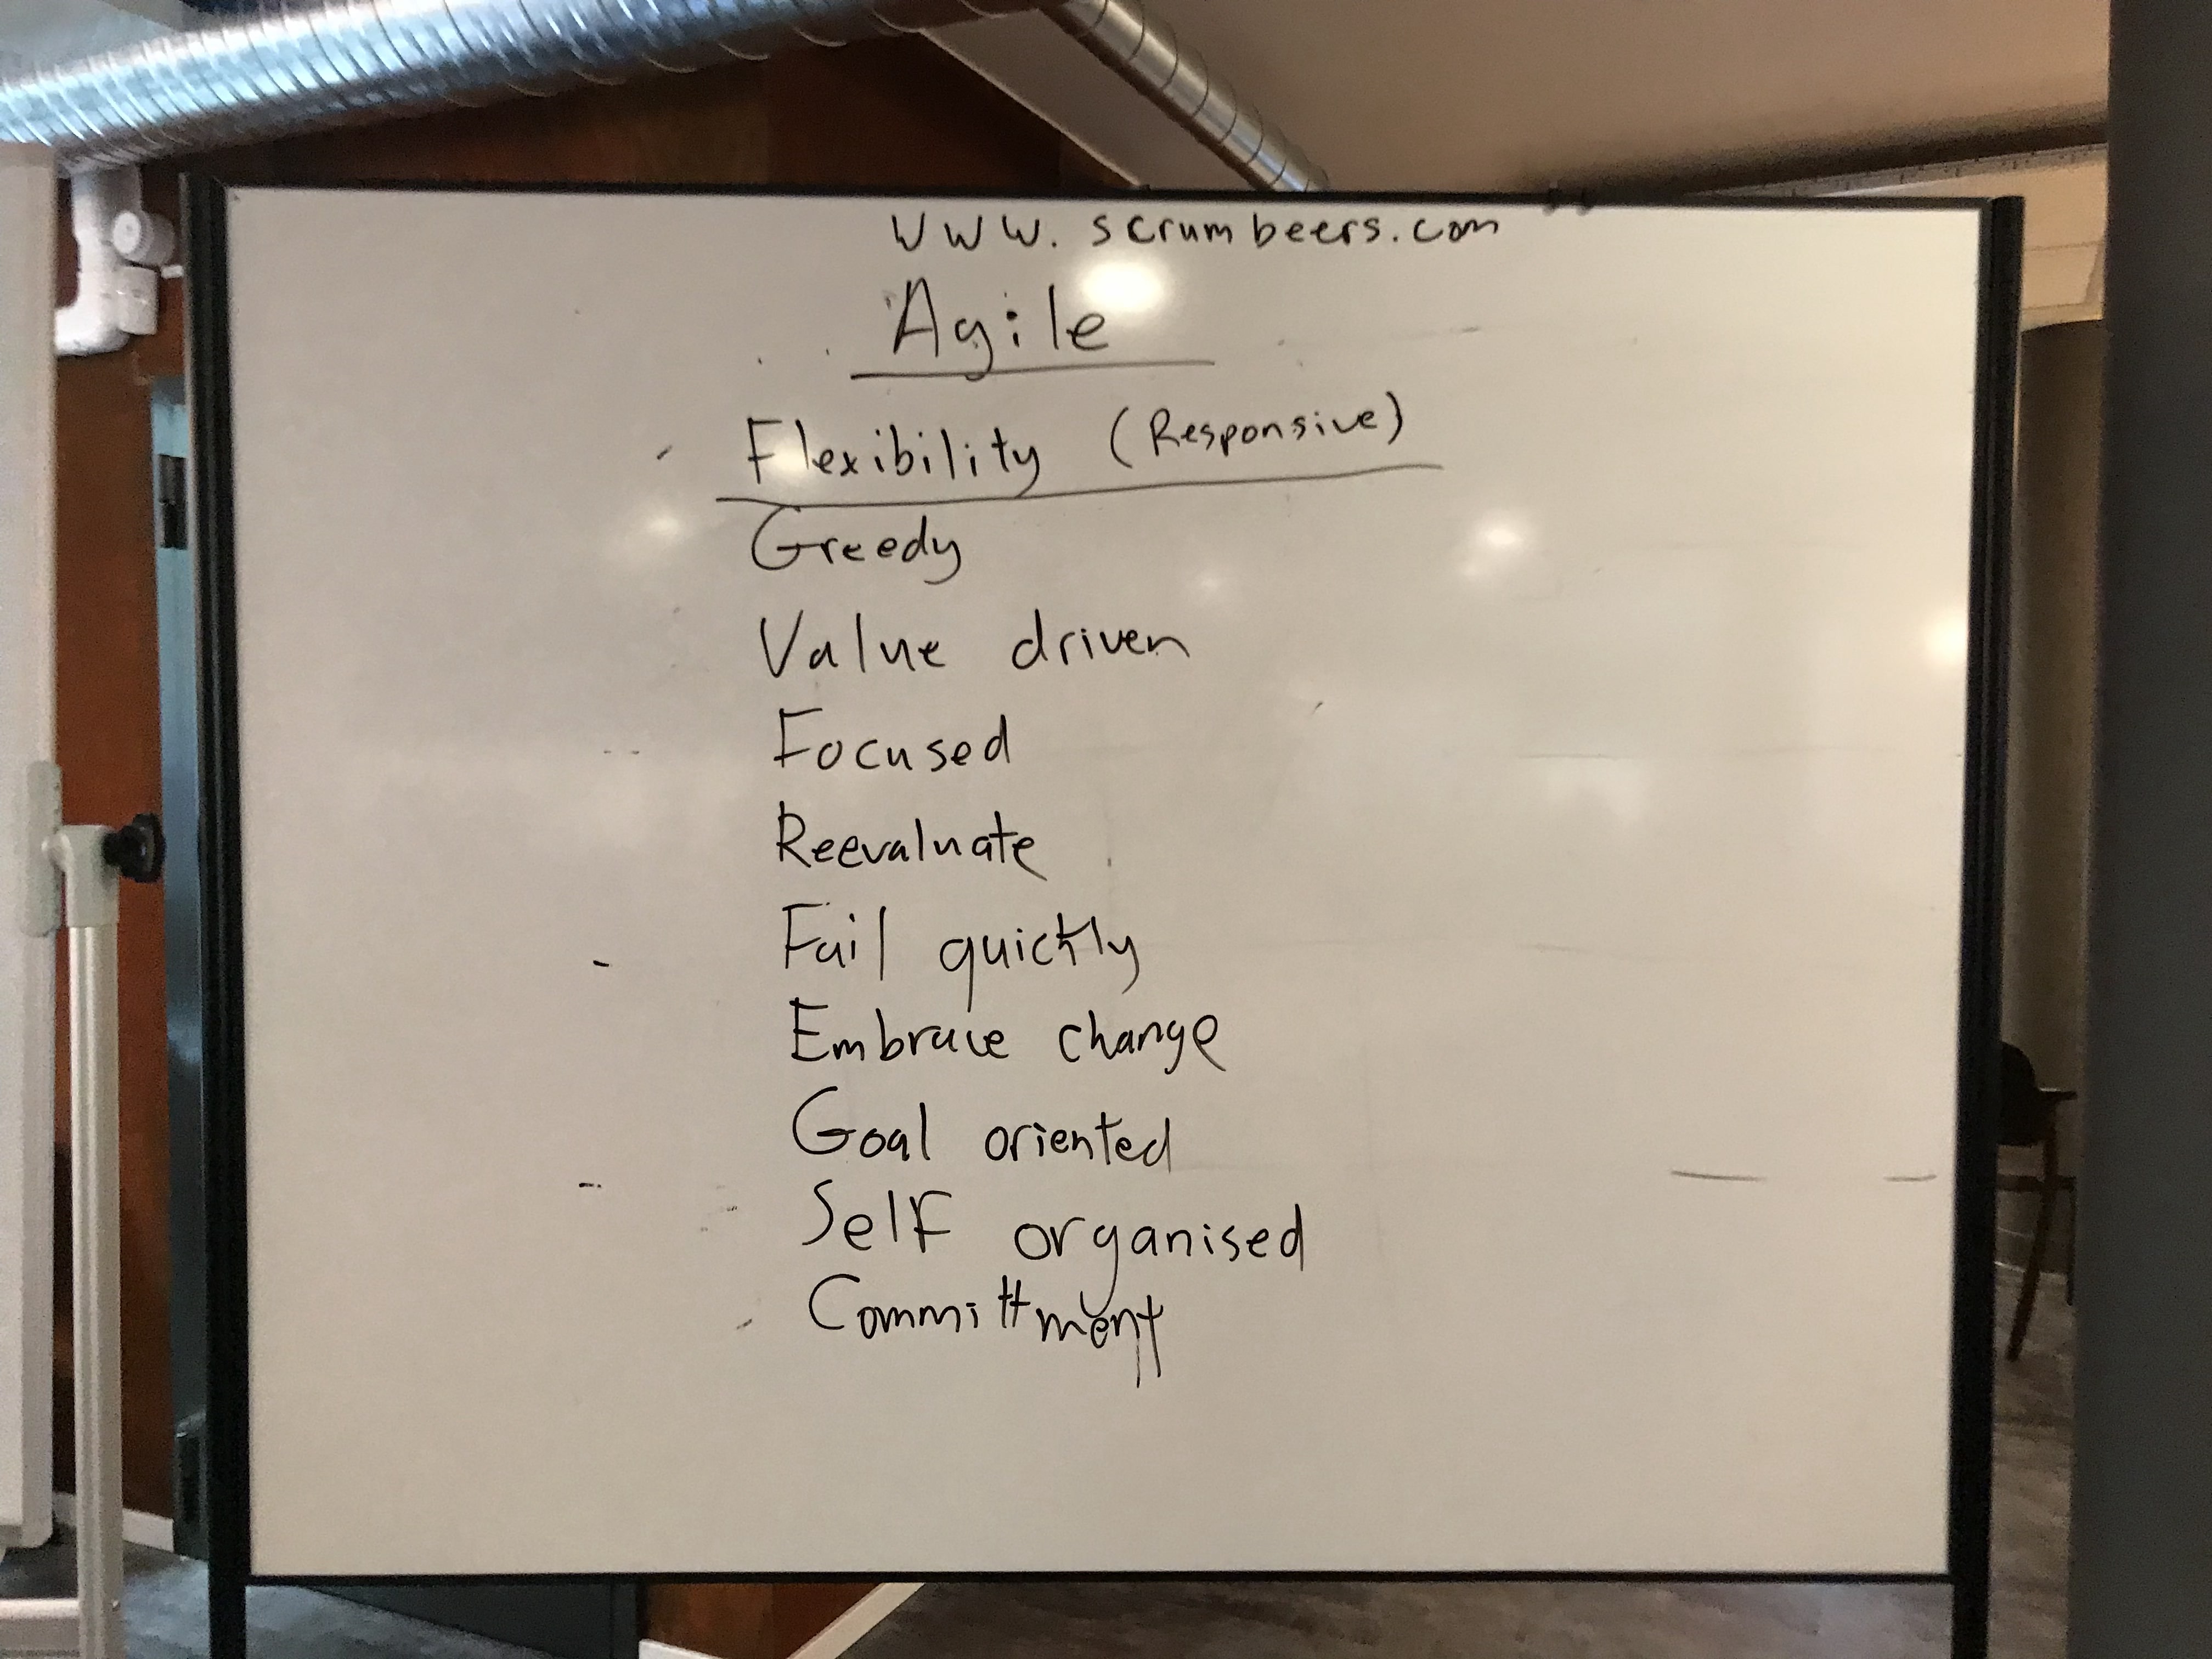 www.scrumbeers.com
Agile
Flexibility (Responsive)
Greedy
Value driven
Focused
Reevaluate
Fail quickly
Embrace change
Goal oriented
Self organised
Committment